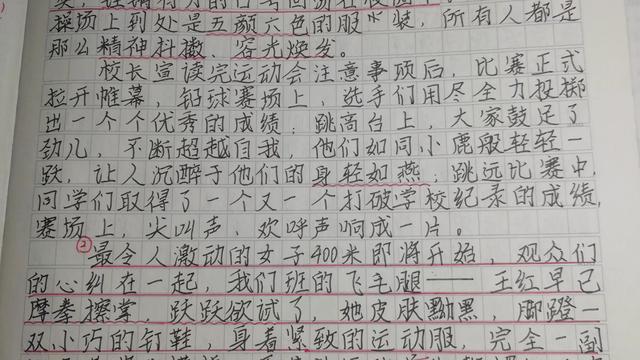 操场上到处是五颜六色的服装，所有人都是
那么精神抖擞、容光焕发。
校长宣读完运动会注意事项后，比赛正式
拉开帷幕，铅球赛场上，选手们用尽全力投掷
出一个个优秀的成绩；跳高台上，大家鼓足了
劲儿，不断超越自我，他们如同小鹿般轻轻一
跃，让人沉醉于他们的身轻如燕；跳远比赛中，
同学们取得了一个又一个打破学校纪录的成绩，
赛场上，尖叫声、欢呼声响成一片。
②最令人激动的女子400米即将开始，观众们
的心纠在一起，我们班的飞毛腿——王红早已
摩拳擦掌，跃跃欲试了，她皮肤黝黑，脚蹬一
双小巧的钉鞋，身着紧致的运动服，完全一副